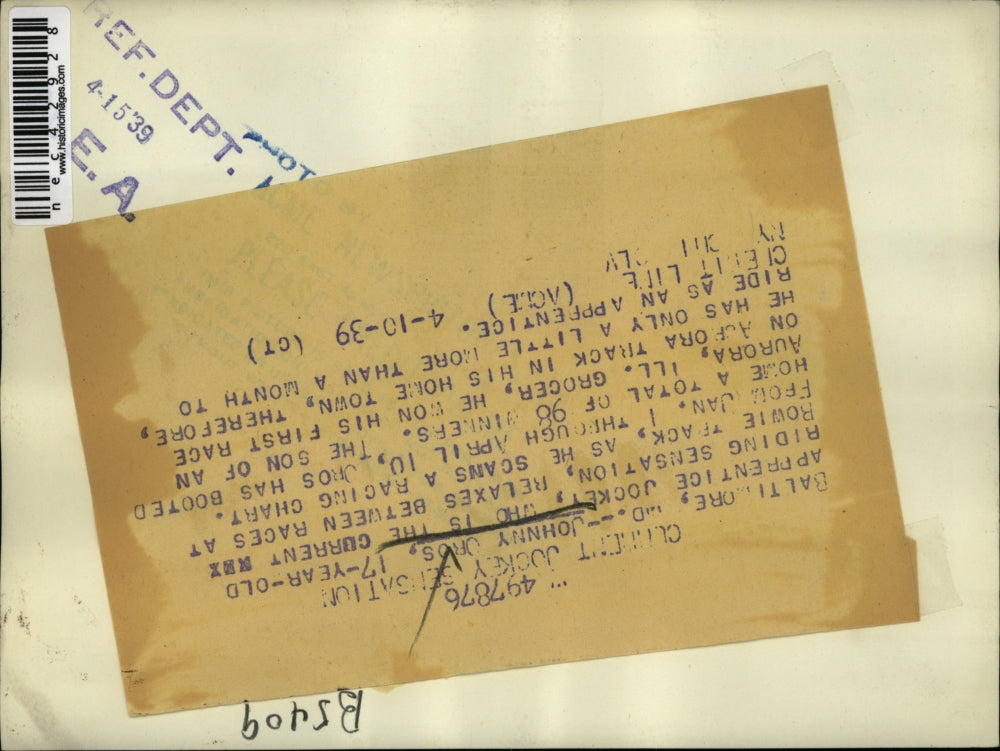 nec42928
www.historicimages.com
REF.DEPT.
4-15'39
E.A.
PHOTO BY
ACME NEWS
PLEASE
497876
CURRENT JOCKEY SENSATION
BALTIMORE, MD.--JOHNNY OROS, 17-YEAR-OLD
APPRENTICE JOCKEY, WHO IS THE CURRENT XXX
RIDING SENSATION, RELAXES BETWEEN RACES AT
BOWIE TRACK, AS HE SCANS A RACING CHART.
FROM JAN. 1 THROUGH APRIL 10, OROS HAS BOOTED
HOME A TOTAL OF 98 WINNERS. THE SON OF AN
AURORA, ILL. GROCER, HE WON HIS FIRST RACE
ON AURORA TRACK IN HIS HOME TOWN, THEREFORE,
HE HAS ONLY A LITTLE MORE THAN A MONTH TO
RIDE AS AN APPRENTICE.
CREDIT LINE (ACME) 4-10-39 (CT)
NY CHI CLV
B5409